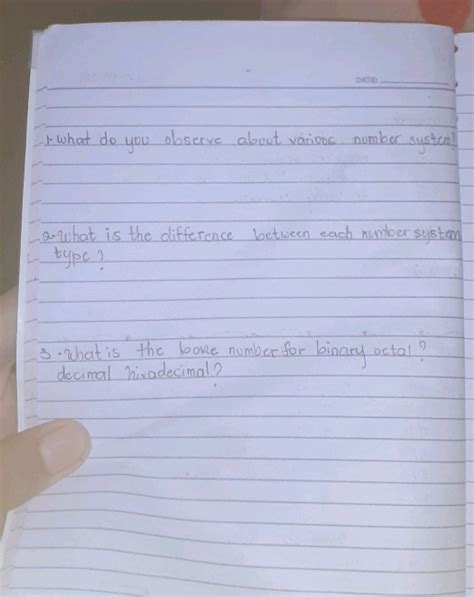 DATE:
1. What do you observe about various number system?
2. What is the difference between each number system
type?
3. What is the base number for binary octal?
decimal hixadecimal?